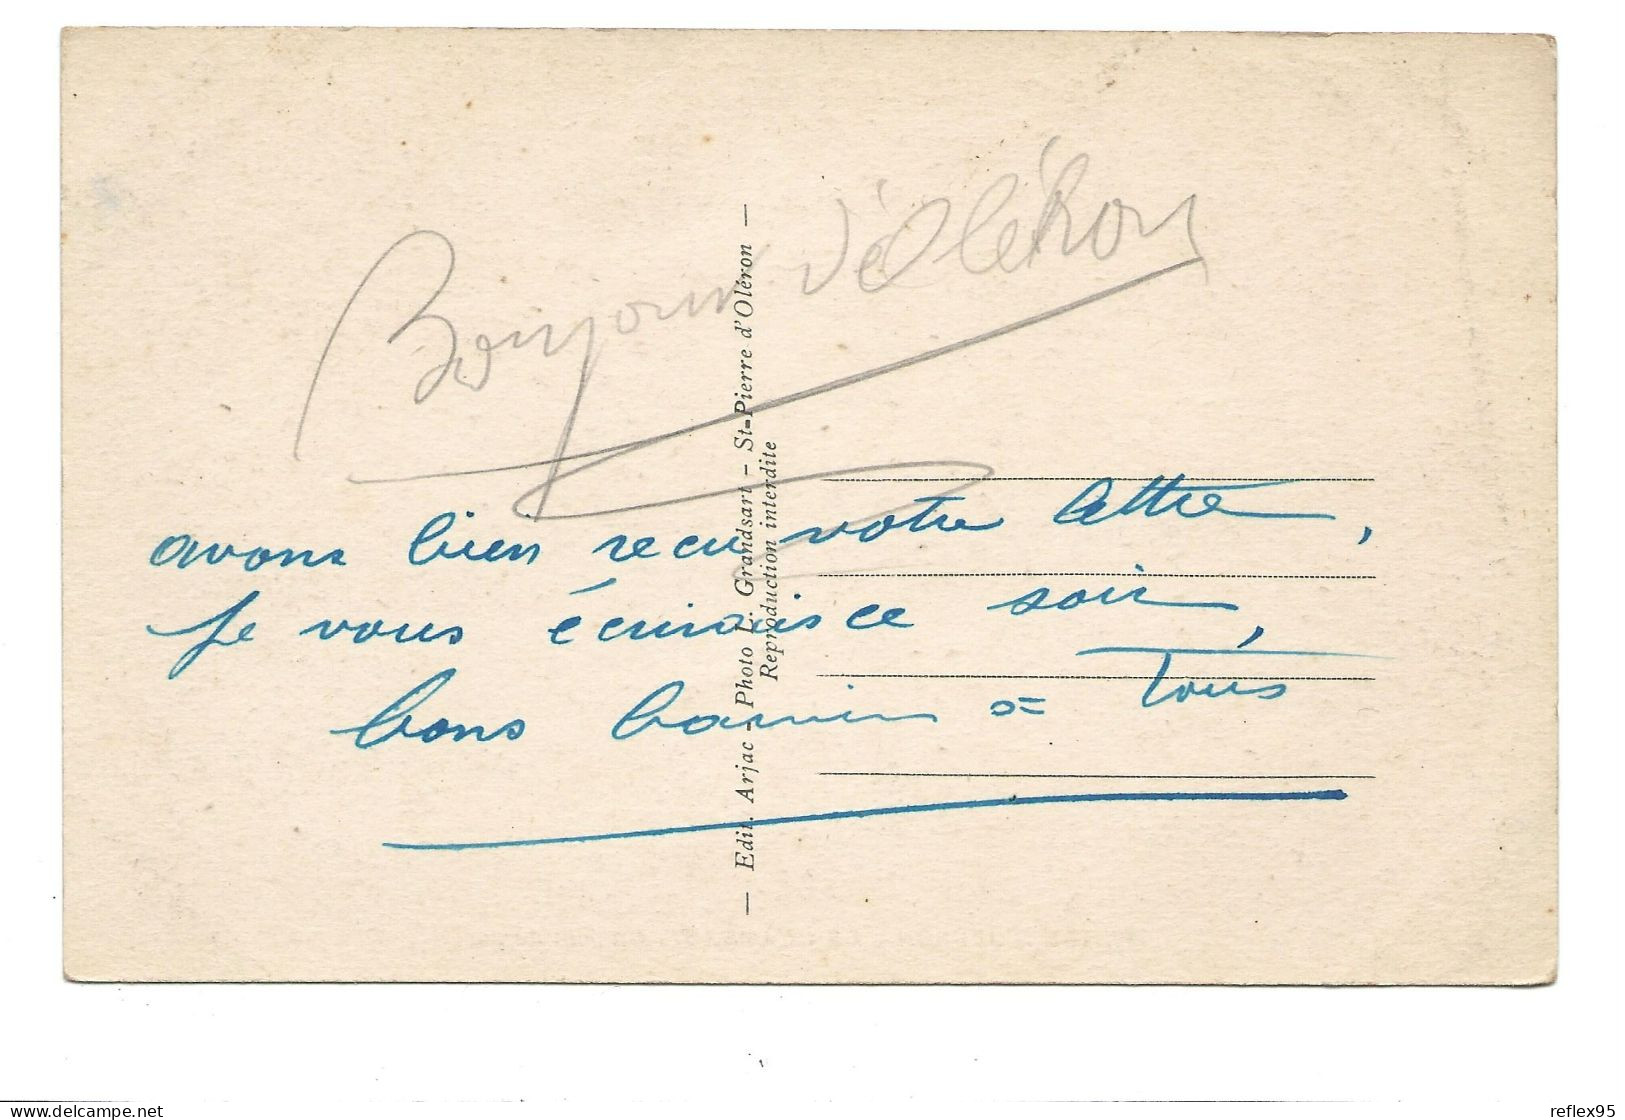 Bonjour d'Oléron
avons bien recu votre lettre,
je vous écrirais ce soir,
bons baisers à Tous
— Edit. Arjac - Photo L. Grandsart - St-Pierre d'Oléron —
Reproduction interdite
delcampe.net
reflex95